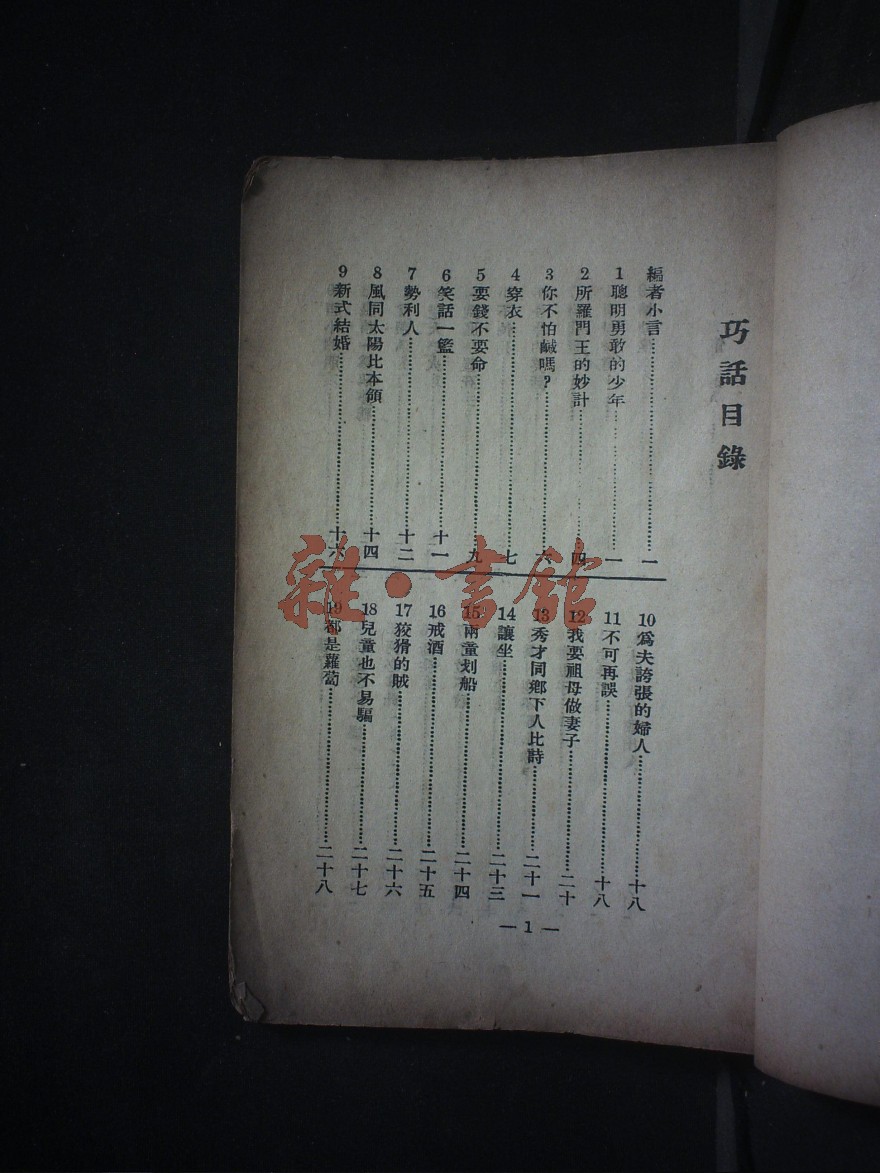 巧話目錄
編者小言……一
1 聰明勇敢的少年……一
2 所羅門王的妙計……四
3 你不怕鹹嗎?……六
4 穿衣……七
5 要錢不要命……九
6 笑話一籃……十一
7 勢利人……十二
8 風同太陽比本領……十四
9 新式結婚……十六
10 爲夫誇張的婦人……十八
11 不可再誤……十八
12 我要祖母做妻子……二十
13 秀才同鄉下人比詩……二十一
14 讓坐……二十三
15 兩童划船……二十四
16 戒酒……二十五
17 狡猾的賊……二十六
18 兒童也不易騙……二十七
19 都是蘿蔔……二十八
— 1 —
雜·書館